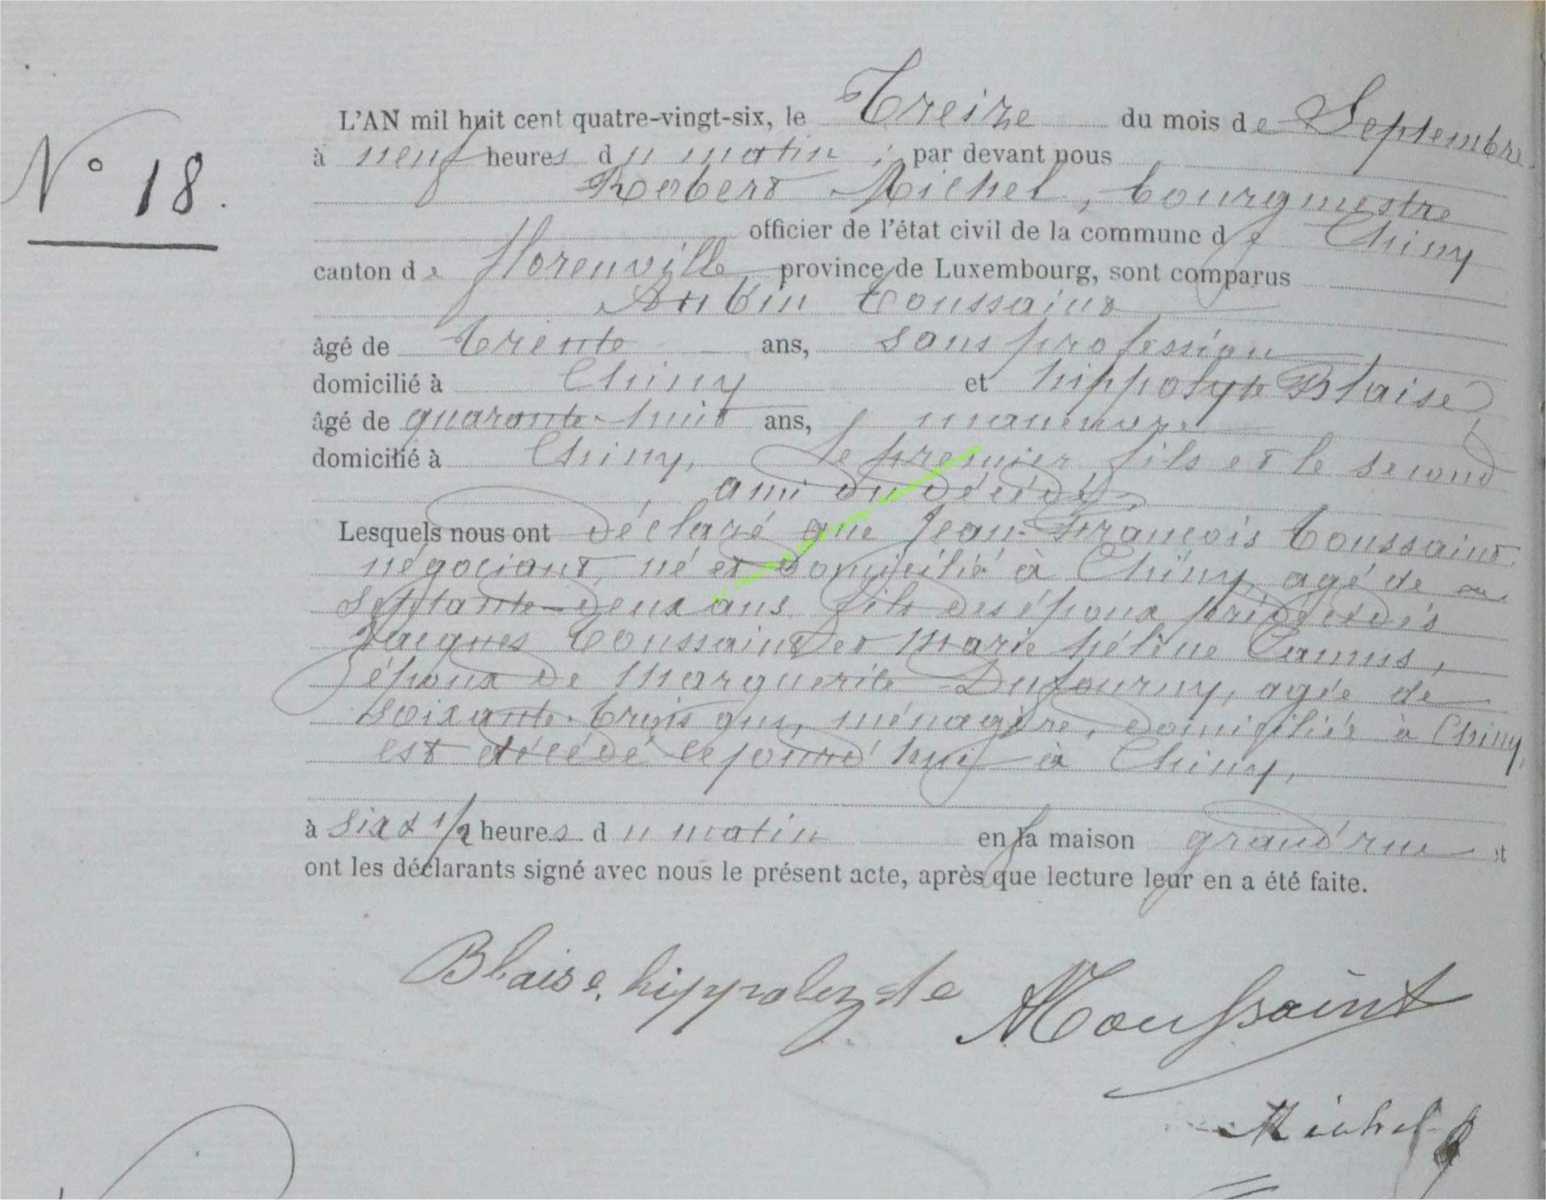 N° 18.
L'AN mil huit cent quatre-vingt-six, le Treize du mois de Septembre
à neuf heures du matin, par devant nous
Robert Michel, bourgmestre
officier de l'état civil de la commune de Chiny
canton de florenville, province de Luxembourg, sont comparus
Aubin Toussaint
âgé de trente ans, sans profession
domicilié à Chiny et hippolyte Blaise,
âgé de quarante-huit ans, manœuvre
domicilié à Chiny, le premier fils et le second
ami du décédé,
Lesquels nous ont déclaré que Jean-François Toussaint
négociant, né et domicilié à Chiny, agé de
septante-deux ans fils des époux prédécédés
Jacques Toussaint et Marie hélène Camus,
époux de Marguerite Dufourny, agée de
soixante-trois ans, ménagère, domiciliée à Chiny,
est décédé cejourd'hui à Chiny,
à six & 1/2 heures du matin en sa maison grand'rue et
ont les déclarants signé avec nous le présent acte, après que lecture leur en a été faite.
Blaise, hippolyte AToussaint
Michel